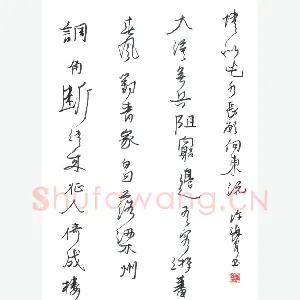 調角断清秋征人倚戍楼
春風對青冢白日落梁州
大漠無兵阻窮邊有客遊蕃
情似此水長願向南流
Shufawang.CN